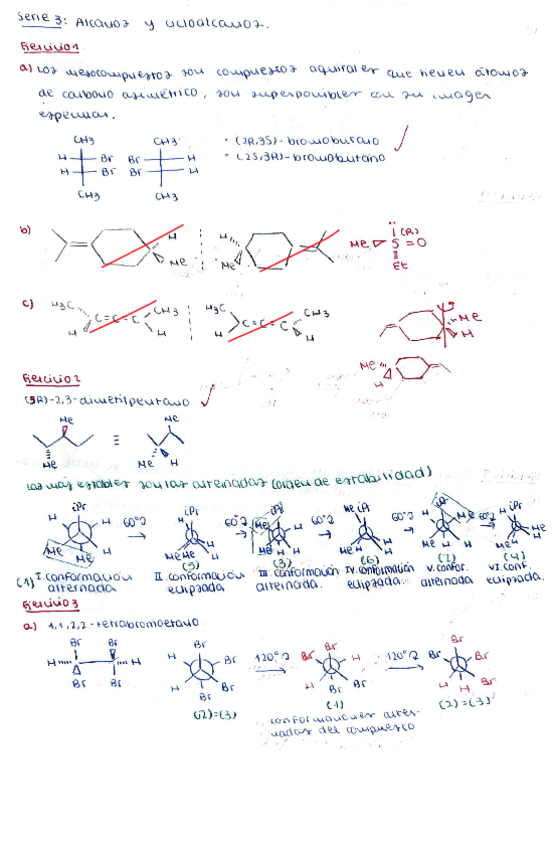 Serie 3: Alcanos y cicloalcanos.
Ejercicio 1
a) Los mesocompuestos son compuestos aquirales que tienen átomos
de carbono asimétrico, son superponibles con su imagen
especular.
CH3 CH3
H Br Br H
H Br Br H
CH3 CH3
• (2R,3S)-bromobutano
• (2S,3R)-bromobutano
b) H Me H Me
(R)
Me S = O
Et
c) H3C C=C=C CH3 H H
H3C C=C=C CH3 H H
Me H
Me H
Ejercicio 2
(3R)-2,3-dimetilpentano
Me Me
Me ≡ Me H
Las más estables son las alternadas (orden de estabilidad)
iPr 60°↻ iPr 60°↻ iPr 60°↻ iPr 60°↻ iPr 60°↻ iPr
(1) (5) (3) (6) (2) (4)
I. conformación alternada
II. conformación eclipsada
III conformación alternada.
IV. conformación eclipsada.
V. confor. alternada
VI. conf. eclipsada.
Ejercicio 3
a) 1,1,2,2-tetrabromoetano
Br Br
H H
Br Br
H Br Br H Br Br
120°↻
Br Br H H Br Br
120°↻
Br Br Br H H Br
(2)=(3) (1) (2)=(3)
conformaciones alter-
nadas del compuesto